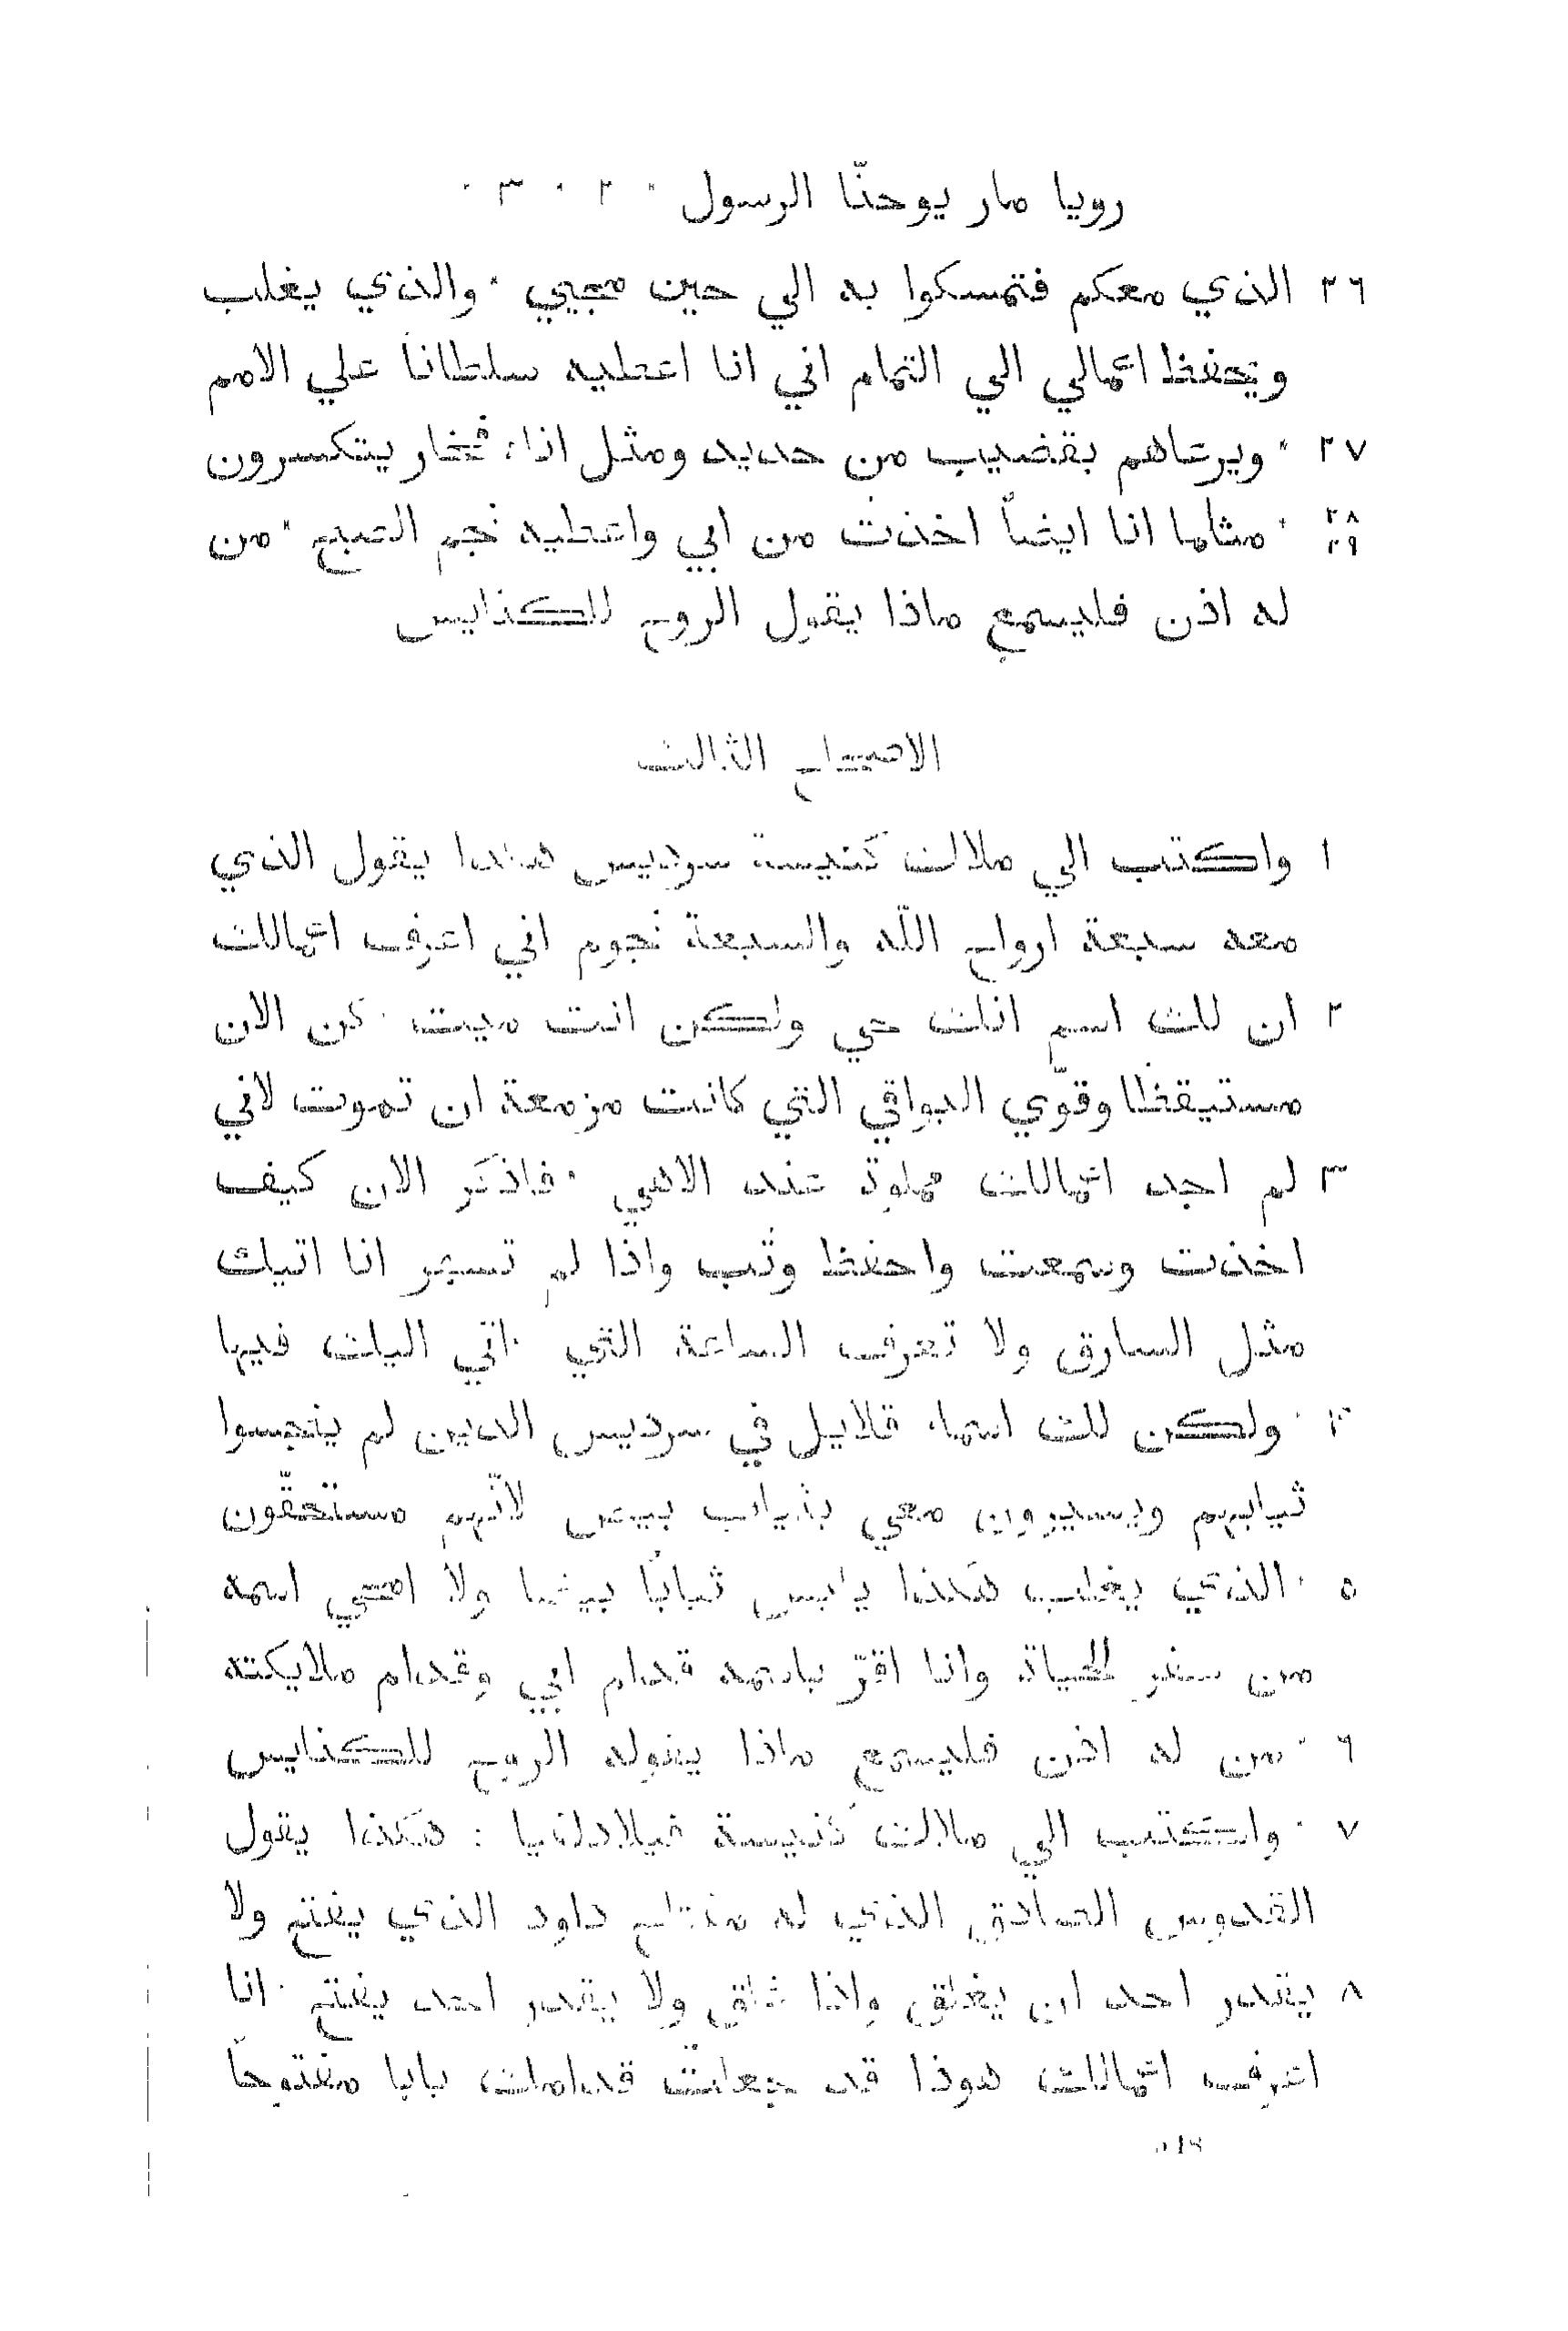 رويا مار يوحنّا الرسول * ٢ . ٣ .
٢٦ الذي معكم فتمسكوا به الي حين مجيي * والذي يغلب
ويحفظ اعمالي الي التمام اني انا اعطيه سلطاناً علي الامم
٢٧ * ويرعاهم بقضيب من حديد ومثل اناء فخار يتكسرون
٢٨ * مثلما انا ايضاً اخذت من ابي واعطيه نجم الصبح * من
٢٩
له اذن فليسمع ماذا يقول الروح للكنايس
الاصحاح الثالث
١ واكتب الي ملاك كنيسة سرديس هكذا يقول الذي
معه سبعة ارواح اللّه والسبعة نجوم اني اعرف اعمالك
٢ ان لك اسم انك حي ولكن انت ميت * كن الان
مستيقظا وقوّي البواقي التي كانت مزمعة ان تموت لاني
٣ لم اجد اعمالك مملوة عند الاهي * فاذكر الان كيف
اخذت وسمعت واحفظ وتب واذا لم تسهر انا اتيك
مثل السارق ولا تعرف الساعة التي اتي اليك فيها
٤ * ولكن لك اسما قلايل في سرديس الذين لم ينجسوا
ثيابهم ويسيرون معي بثياب بيض لانّهم مستحقّون
٥ * الذي يغلب هكذا يلبس ثياباً بيضا ولا امحي اسمه
من سفر الحياة وانا اقرّ باسمه قدام ابي وقدام ملايكته
٦ * من له اذن فليسمع ماذا يقوله الروح للكنايس
٧ * واكتب الي ملاك كنيسة فيلادلفيا : هكذا يقول
القدوس الصادق الذي له مفتاح داود الذي يفتح ولا
٨ يقدر احد ان يغلق واذا غلق ولا يقدر احد يفتح * انا
اعرف اعمالك هوذا قد جعلت قدامك بابا مفتوحاً